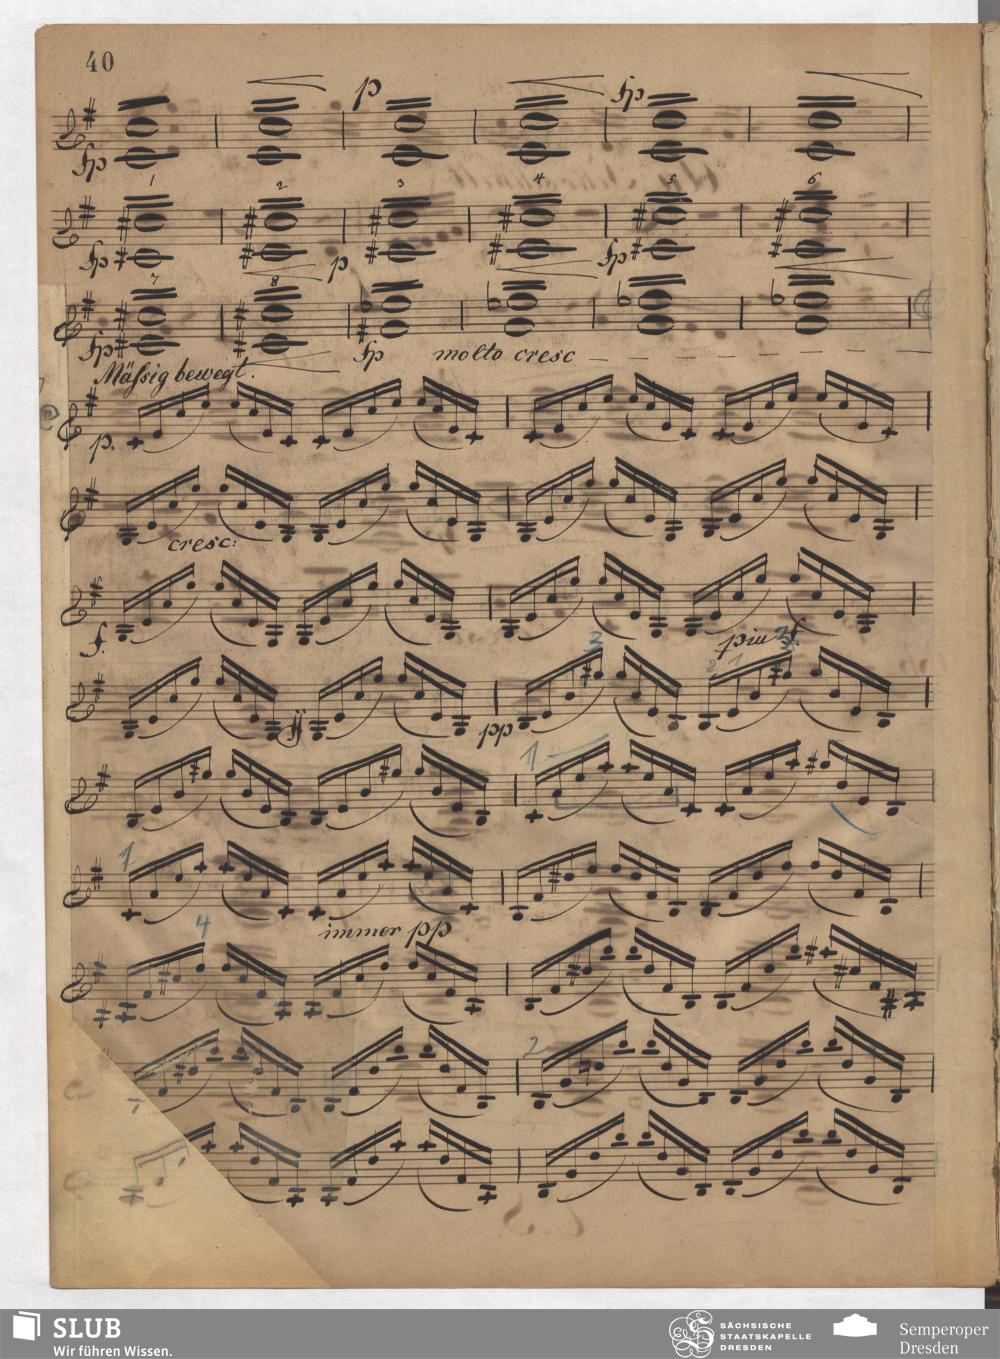 40
p fp
fp
1 2 3 4 5 6
fp p fp
7 8
fp fp molto cresc
Mäßig bewegt.
p.
cresc:
f.
3 piu f.
2 1
ff pp
1
1
4 immer pp
2
SLUB
Wir führen Wissen.
SÄCHSISCHE
STAATSKAPELLE
DRESDEN
Semperoper
Dresden